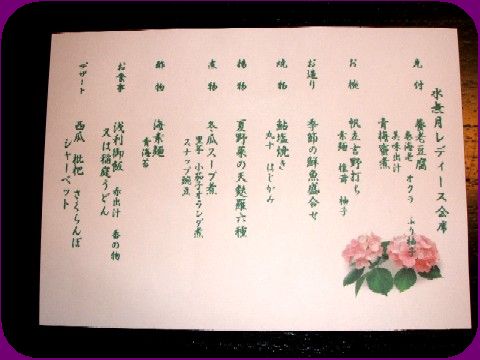 水無月レディース会席
先付
養老豆腐
巻海老 オクラ ふり柚子
美味出汁
青梅蜜煮
お椀
帆立吉野打ち
素麺 椎茸 柚子
お造り
季節の鮮魚盛合せ
焼物
鮎塩焼き
丸十 はじかみ
揚物
夏野菜の天麩羅六種
煮物
冬瓜スープ煮
里芋 小茄子オランダ煮
スナップ豌豆
酢物
海素麺
青海苔
お食事
浅利御飯 赤出汁 香の物
又は稲庭うどん
デザート
西瓜 枇杷 さくらんぼ
シャーベット